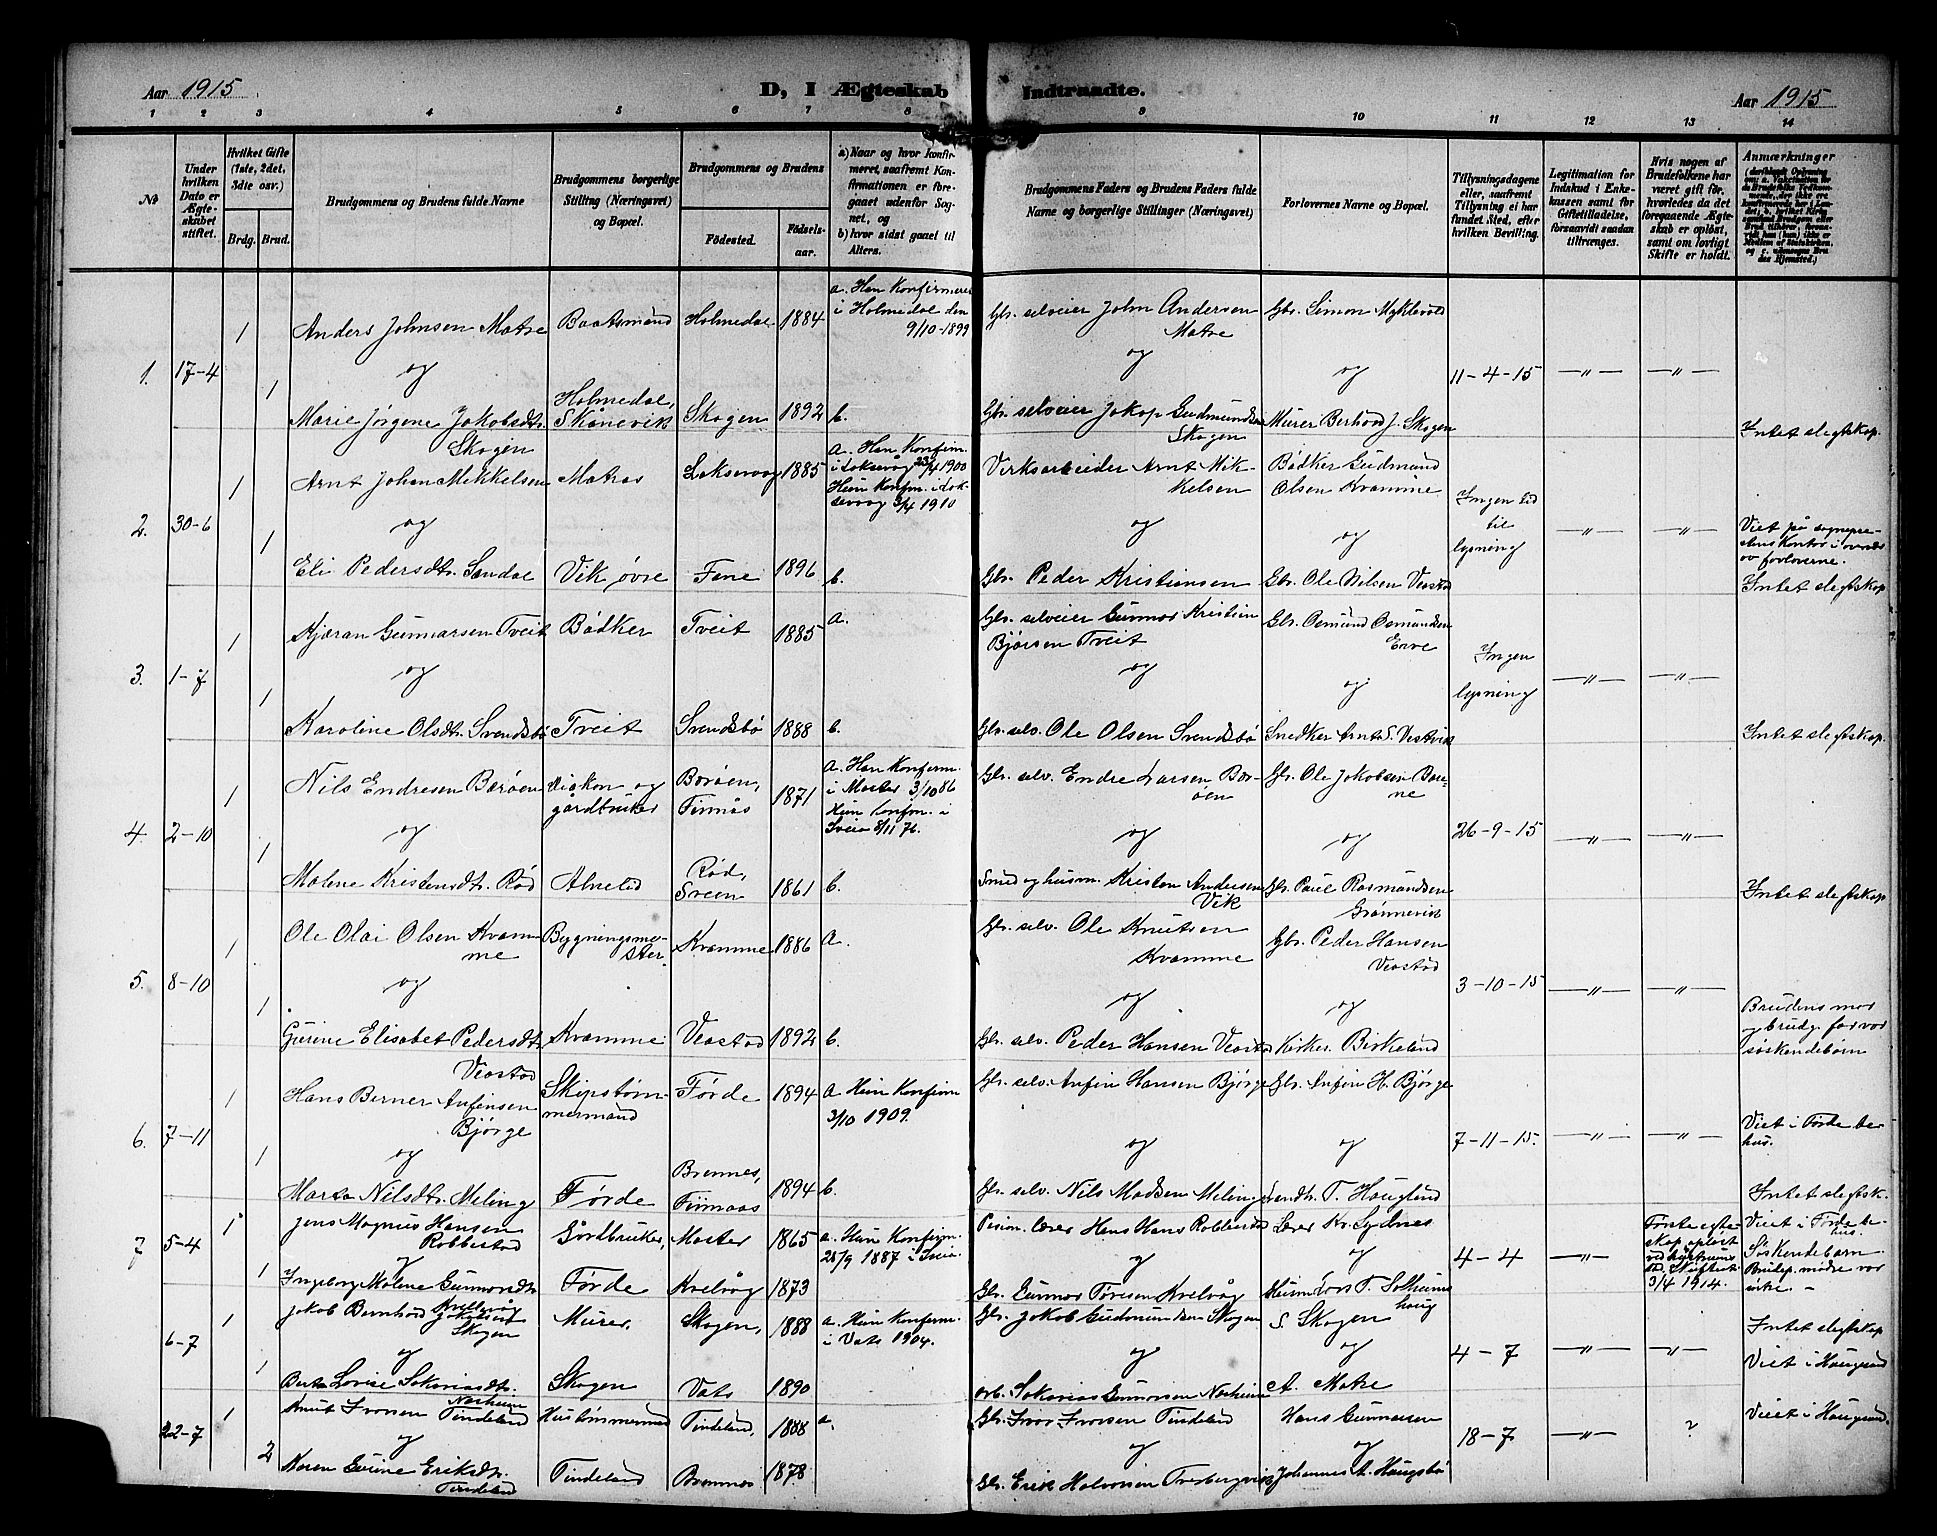 Aar 1915
D, I Ægteskab Indtraadte.
Aar 1915
1 2 3 4 5 6 7 8 9 10 11 12 13 14
№
Under hvilken Dato er Ægteskabet stiftet.
Hvilket Gifte (1ste, 2det, 3die osv.)
Brdg. Brud.
Brudgommens og Brudens fulde Navne
Brudgommens borgerlige Stilling (Næringsvei) og Bopæl.
Brudgommens og Brudens
Fødested.
Fødselsaar.
a) Naar og hvor konfirmeret, saafremt Konfirmationen er foregaaet udenfor Sognet, og
b) hvor sidst gaaet til Alters.
Brudgommens Faders og Brudens Faders fulde Navne og borgerlige Stillinger (Næringsvei)
Forlovernes Navne og Bopæl.
Tillysningsdagene eller, saafremt Tillysning ei har fundet Sted, efter hvilken Bevilling.
Legitimation for Indskud i Enkekassen samt for Giftetilladelse, forsaavidt saadan tiltrænges.
Hvis nogen af Brudefolkene har været gift før, hvorledes da det foregaaende Ægteskab er opløst, samt om lovligt Skifte er holdt.
Anmærkninger
1. 17-4
1 Anders Johnsen Matre Baatsmand Holmedal 1884 a. Han Konfirmeret i Holmedal den 9/10-1899
Gbr. selveier John Andersen Matre
Gbr. Simon Myklevold
og og og 11-4-15 —"— —"—
1 Marie Jørgene Jakobsdtr. Skogen Holmedal, Skånevik Skogen 1892 b.
Gbr. selveier Jakop Gudmundsen Skogen
Murer Berhard J. Skogen
Intet slegtskap.
2. 30-6
1 Arnt Johan Mikkelsen Matros Laksevaag 1885 a. Han Konfirm. i Laksevåg 23/4 1900 Hun Konfm. i Laksevaag 3/4 1910
Verksarbeider Arnt Mikkelsen
Bødker Gudmund Olsen Kvamme
og og og Ingen tid til lysning —"— —"—
Viet på sogneprestens Kontor i overvær av forloverne.
1 Eli Pedersdtr. Sandal Vik øvre Fane 1896 b.
Gbr. Peder Kristiansen
Gbr. Ole Nilsen Veastad
Intet slegtskap
3. 1-7
1 Kjæran Gunnarsen Tveit Bødker Tveit 1885 a.
Gbr. selveier Gunnar Kristian Bjørsen Tveit
Gbr. Osmund Osmundsen Erve
og og og Ingen lysning —"— —"—
1 Karoline Olsdtr. Svendsbø Tveit Svendsbø 1888 b.
Gbr. selv. Ole Olsen Svendsbø
Snedker Arnt S. Vestvik
Intet slegtskap.
4. 2-10
1 Nils Endresen Børøen diakon og gårdbruker Børøen, Finnås 1871 a. Han Konfirm. i Moster 3/10 86 Hun konfm. i Sveio 8/11 76.
Gbr. selv. Endre Larsen Børøen
Gbr. Ole Jakobsen
og og og 26-9-15 —"— —"—
1 Malene Kristensdtr. Rød Alnestad Rød, Sveen 1861 b.
Smed og husm. Kristen Andersen Vik
Gbr. Paul Rasmundsen Grønnevik
Intet slegtskap
5. 8-10
1 Ole Olai Olsen Kvamme Bygningsmester Kvamme 1886 a.
Gbr. selv. Ole Knutsen Kvamme
Gbr. Peder Hansen Veastad
og og og 3-10-15 —"— —"—
1 Gurine Elisabet Pedersdtr. Veastad Kvamme Veastad 1892 b.
Gbr. selv. Peder Hansen Veastad
Kirker Birkeland
Brudens mor og brudg. far var søskendebørn
6. 7-11
1 Hans Berner Anfinsen Bjørge Skipstømmermand Førde 1894 a. Hun Konfirm 3/10 1909.
Gbr. selv. Anfin Hansen Bjørge
Gbr. Anfin H. Bjørge
og og og 7-11-15. —"— —"—
Viet i Førde bedehus.
1 Marta Nilsdtr. Meling Førde Bremnes, Finnaas 1894 b.
Gbr. selv. Nils Madsen Meling
Lendtr. T. Haugland
Intet slegtsk.
7 5-4
1 Jens Magnus Hansen Robbestad Gårdbruker, Moster 1865 a. Hun Konfirm. 25/9 1887 i Sveio
Pension. lærer Hans Hans Robbestad
Lærer Kr. Sydnes
og og og 4-4 —"—
Første ægteskap opløst ved hustruens død. Skifteatt. 3/4 1914.
Viet i Førde bedehus. Søskendebarn Brudep. mødre var søskn
1 Ingeborg Malene Gunnarsdtr. Kvalvåg Førde Kvalvåg 1873
Gbr. Gunnar Toresen Kvalvåg
Husm. Lars T. Solheimshaug
6-7
1 Jakob Bernhard Jakobsen Skogen Murer. Skogen, 1888 a. Hun Konfirm. i Vats 1904.
Gbr. Jakob Gudmundsen Skogen
S. Skogen
og og og 4-7 —"— —"—
Intet slegtskap
Viet i Haugesund
1 Berta Lovise Sakariasdtr. Norheim Skogen Vats 1890
arb. Sakarias Gunnarsen Norheim
A. Matre
22-7
1 Knut Ivarsen Tindeland Hustømmermand Tindeland, 1888 a.
Gbr. Ivar Ivarsen Tindeland
Hans Gunnarsen
og og og 18-7 —"— ?
Viet i Haugesund.
2 Karen Gurine Eriksdtr. Tindeland Tindeland Bremnes 1878
Gbr. Erik Halvorsen Tverborgvik
Johannes A. Haugsbø